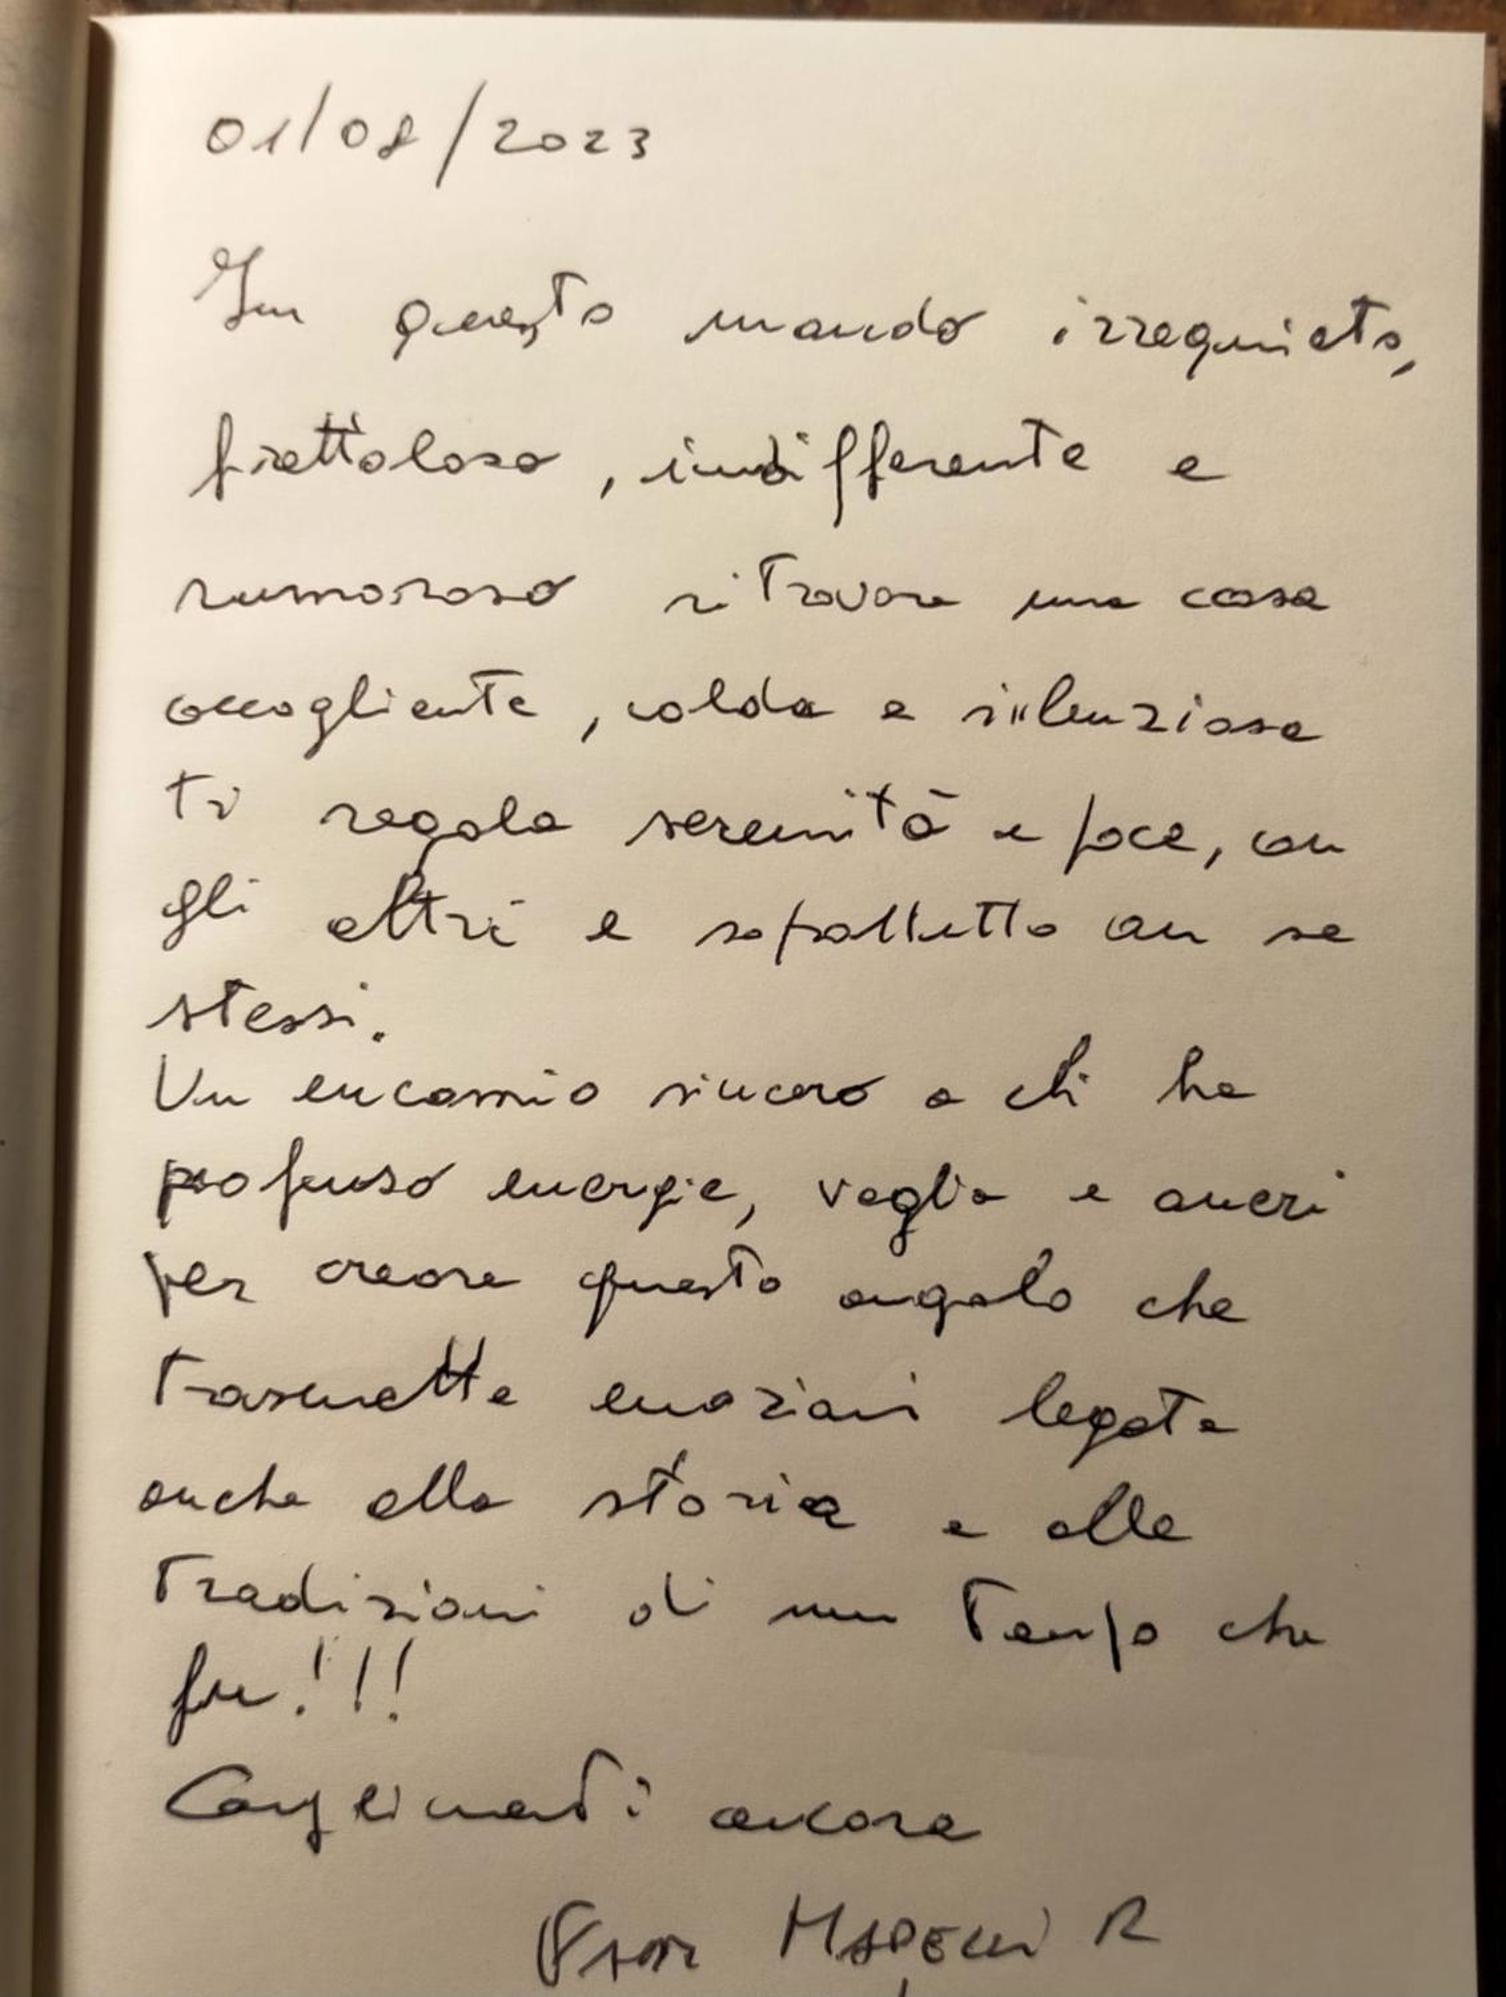 01/08/2023
In questo mondo irrequieto,
frettoloso, indifferente e
rumoroso ritrovare una casa
accogliente, calda e silenziosa
ti regala serenità e pace, con
gli altri e soprattutto con se
stessi.
Un encomio sincero a chi ha
profuso energie, voglia e averi
per creare questo angolo che
trasmette emozioni legate
anche alla storia e alle
tradizioni di un tempo che
fu!!!
Complimenti ancora
MAPELLI R